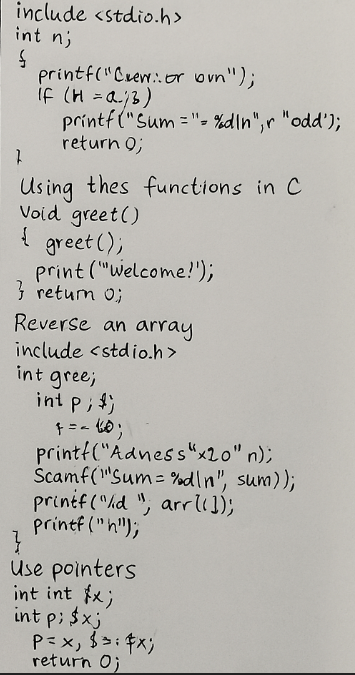 include <stdio.h>
int n;
{
printf("Cuen:.or own");
If (H = a;3)
printf("Sum ="= %dln",r "odd');
return 0;
}
Using thes functions in C
Void greet()
{ greet();
print ("'Welcome!');
} return 0;
Reverse an array
include <stdio.h>
int gree;
int p ; $;
printf("Adness"x20" n);
Scamf(""Sum= %dln", sum));
printf("%d ", arr[i]);
printf ("h");
}
}
Use pointers
int int $x;
int p; $x;
p= x, $ =: $x;
return 0;